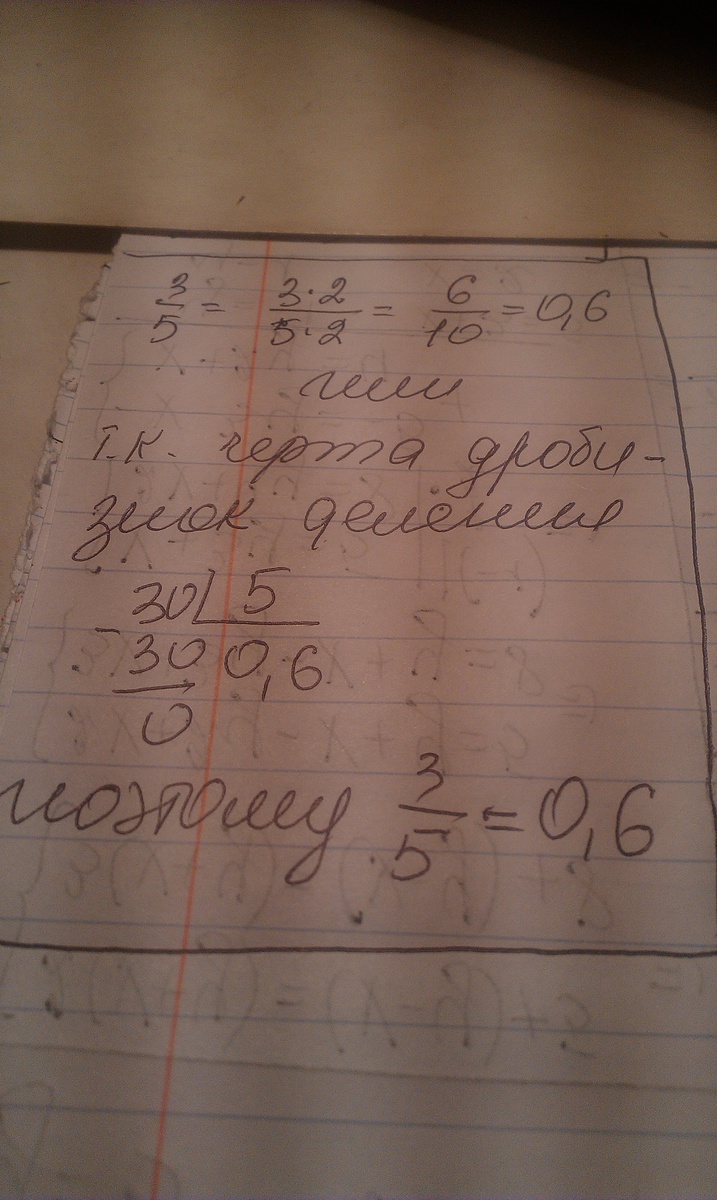 3/5 = 3·2/5·2 = 6/10 = 0,6
или
т.к. черта дроби -
знак деления
30 | 5
- 30 0,6
0
поэтому 3/5 = 0,6